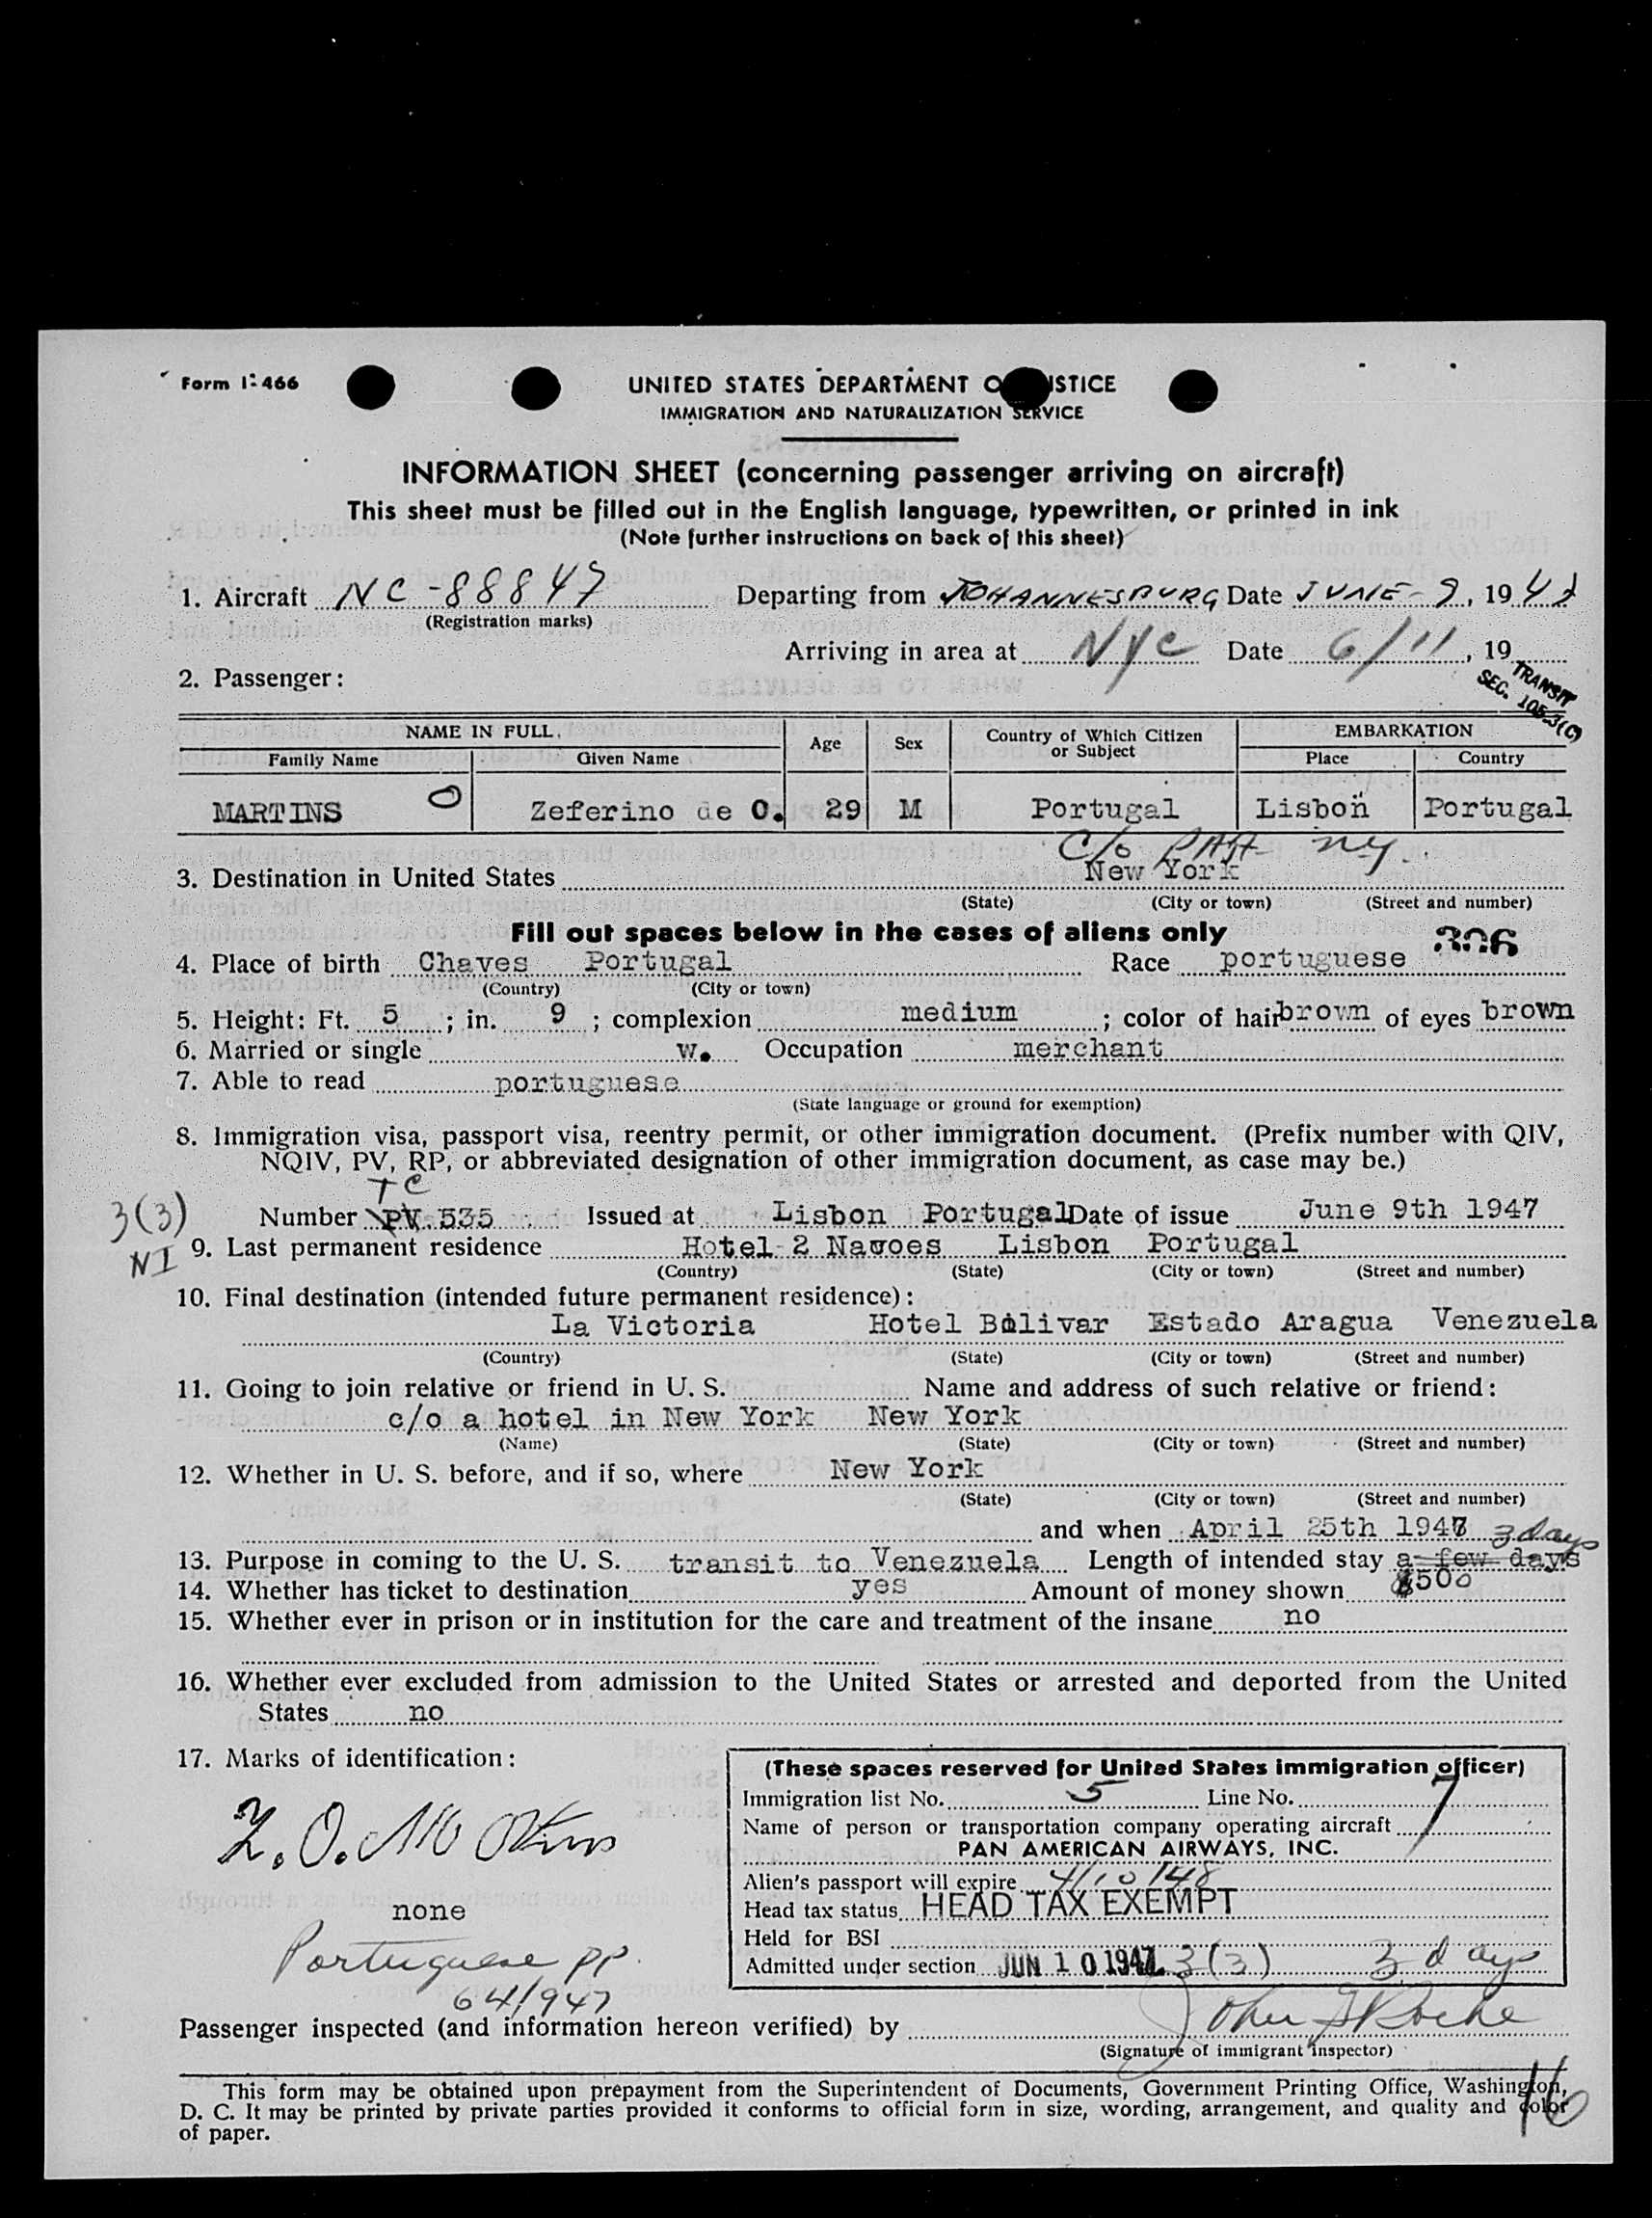 Form I-466
UNITED STATES DEPARTMENT O STICE
IMMIGRATION AND NATURALIZATION SERVICE
INFORMATION SHEET (concerning passenger arriving on aircraft)
This sheet must be filled out in the English language, typewritten, or printed in ink
(Note further instructions on back of this sheet)
1. Aircraft NC-88847 Departing from JOHANNESBURG Date JUNE-9, 1947
(Registration marks)
Arriving in area at NYC Date 6/11, 19
2. Passenger:
TRANSIT
SEC. 105.3(C)
NAME IN FULL. Age Sex Country of Which Citizen or Subject EMBARKATION
Family Name Given Name Place Country
MARTINS O Zeferino de O. 29 M Portugal Lisbon Portugal
c/o PAA NY
3. Destination in United States New York
(State) (City or town) (Street and number)
Fill out spaces below in the cases of aliens only 306
4. Place of birth Chaves Portugal Race portuguese
(Country) (City or town)
5. Height: Ft. 5 ; in. 9 ; complexion medium ; color of hair brown of eyes brown
6. Married or single w. Occupation merchant
7. Able to read portuguese
(State language or ground for exemption)
8. Immigration visa, passport visa, reentry permit, or other immigration document. (Prefix number with QIV,
NQIV, PV, RP, or abbreviated designation of other immigration document, as case may be.)
TC
3(3) Number PV.535 Issued at Lisbon Portugal Date of issue June 9th 1947
NI 9. Last permanent residence Hotel 2 Nacoes Lisbon Portugal
(Country) (State) (City or town) (Street and number)
10. Final destination (intended future permanent residence):
La Victoria Hotel Bolivar Estado Aragua Venezuela
(Country) (State) (City or town) (Street and number)
11. Going to join relative or friend in U. S. Name and address of such relative or friend:
c/o a hotel in New York New York
(Name) (State) (City or town) (Street and number)
12. Whether in U. S. before, and if so, where New York
(State) (City or town) (Street and number)
and when April 25th 1947 3 days
13. Purpose in coming to the U. S. transit to Venezuela Length of intended stay a few days
14. Whether has ticket to destination yes Amount of money shown $500
15. Whether ever in prison or in institution for the care and treatment of the insane no
16. Whether ever excluded from admission to the United States or arrested and deported from the United
States no
17. Marks of identification:
(These spaces reserved for United States immigration officer)
Immigration list No. 5 Line No. 7
Name of person or transportation company operating aircraft
PAN AMERICAN AIRWAYS, INC.
Alien's passport will expire 4/10/48
Head tax status HEAD TAX EXEMPT
none
Held for BSI
Portuguese pp.
Admitted under section JUN 10 1947 3(3) 3 days
64/947
Passenger inspected (and information hereon verified) by John Roche
(Signature of immigrant inspector)
This form may be obtained upon prepayment from the Superintendent of Documents, Government Printing Office, Washington,
D. C. It may be printed by private parties provided it conforms to official form in size, wording, arrangement, and quality and color
of paper.
16